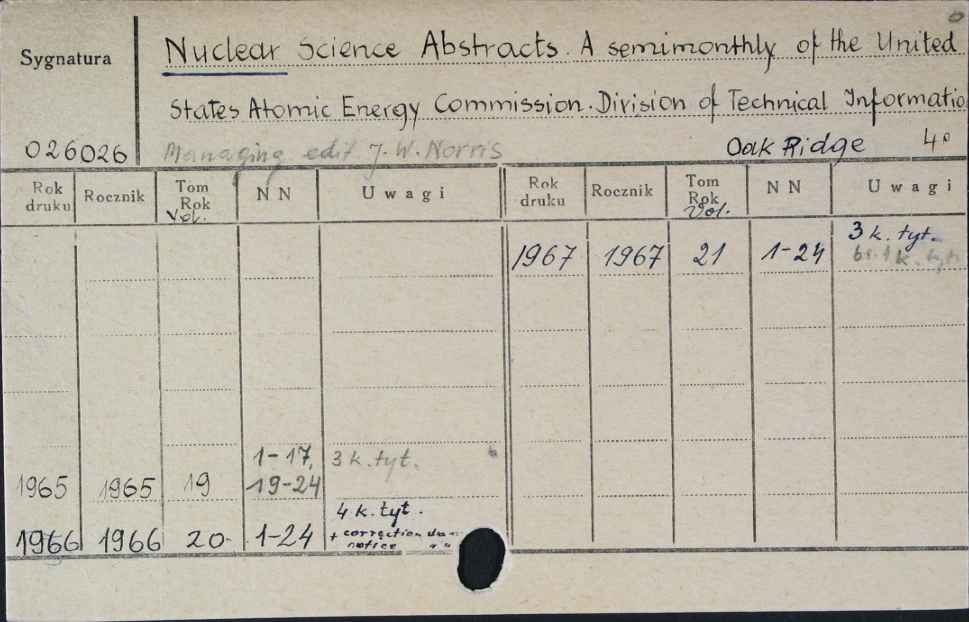 Sygnatura
Nuclear Science Abstracts. A semimonthly of the United
States Atomic Energy Commission. Division of Technical Informatio
026026 Managing edit J. W. Norris Oak Ridge 4°
Rok druku Rocznik Tom Rok Vol. N N Uwagi Rok druku Rocznik Tom Rok Vol. N N Uwagi
1967 1967 21 1-24 3 k. tyt.
1965 1965 19 1-17, 19-24 3 k. tyt.
1966 1966 20 1-24 4 k. tyt.
+ correction
notice